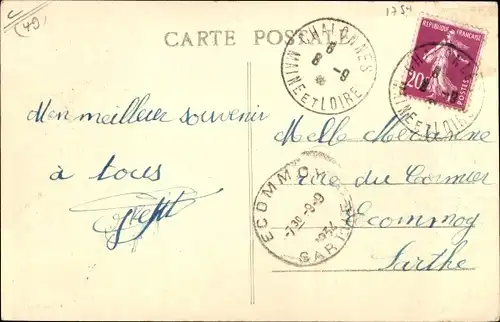 (49)
1754
CARTE POSTALE
CHALONNES
8
8 -9
MAINE ET LOIRE
REPUBLIQUE FRANÇAISE
20c
POSTES
8
8 -9
MAINE ET LOIRE
Mon meilleur souvenir
à tous
Melle
rue du Cormier
Ecommoy
Sarthe
ECOMMOY
7 30 -9-9
SARTHE